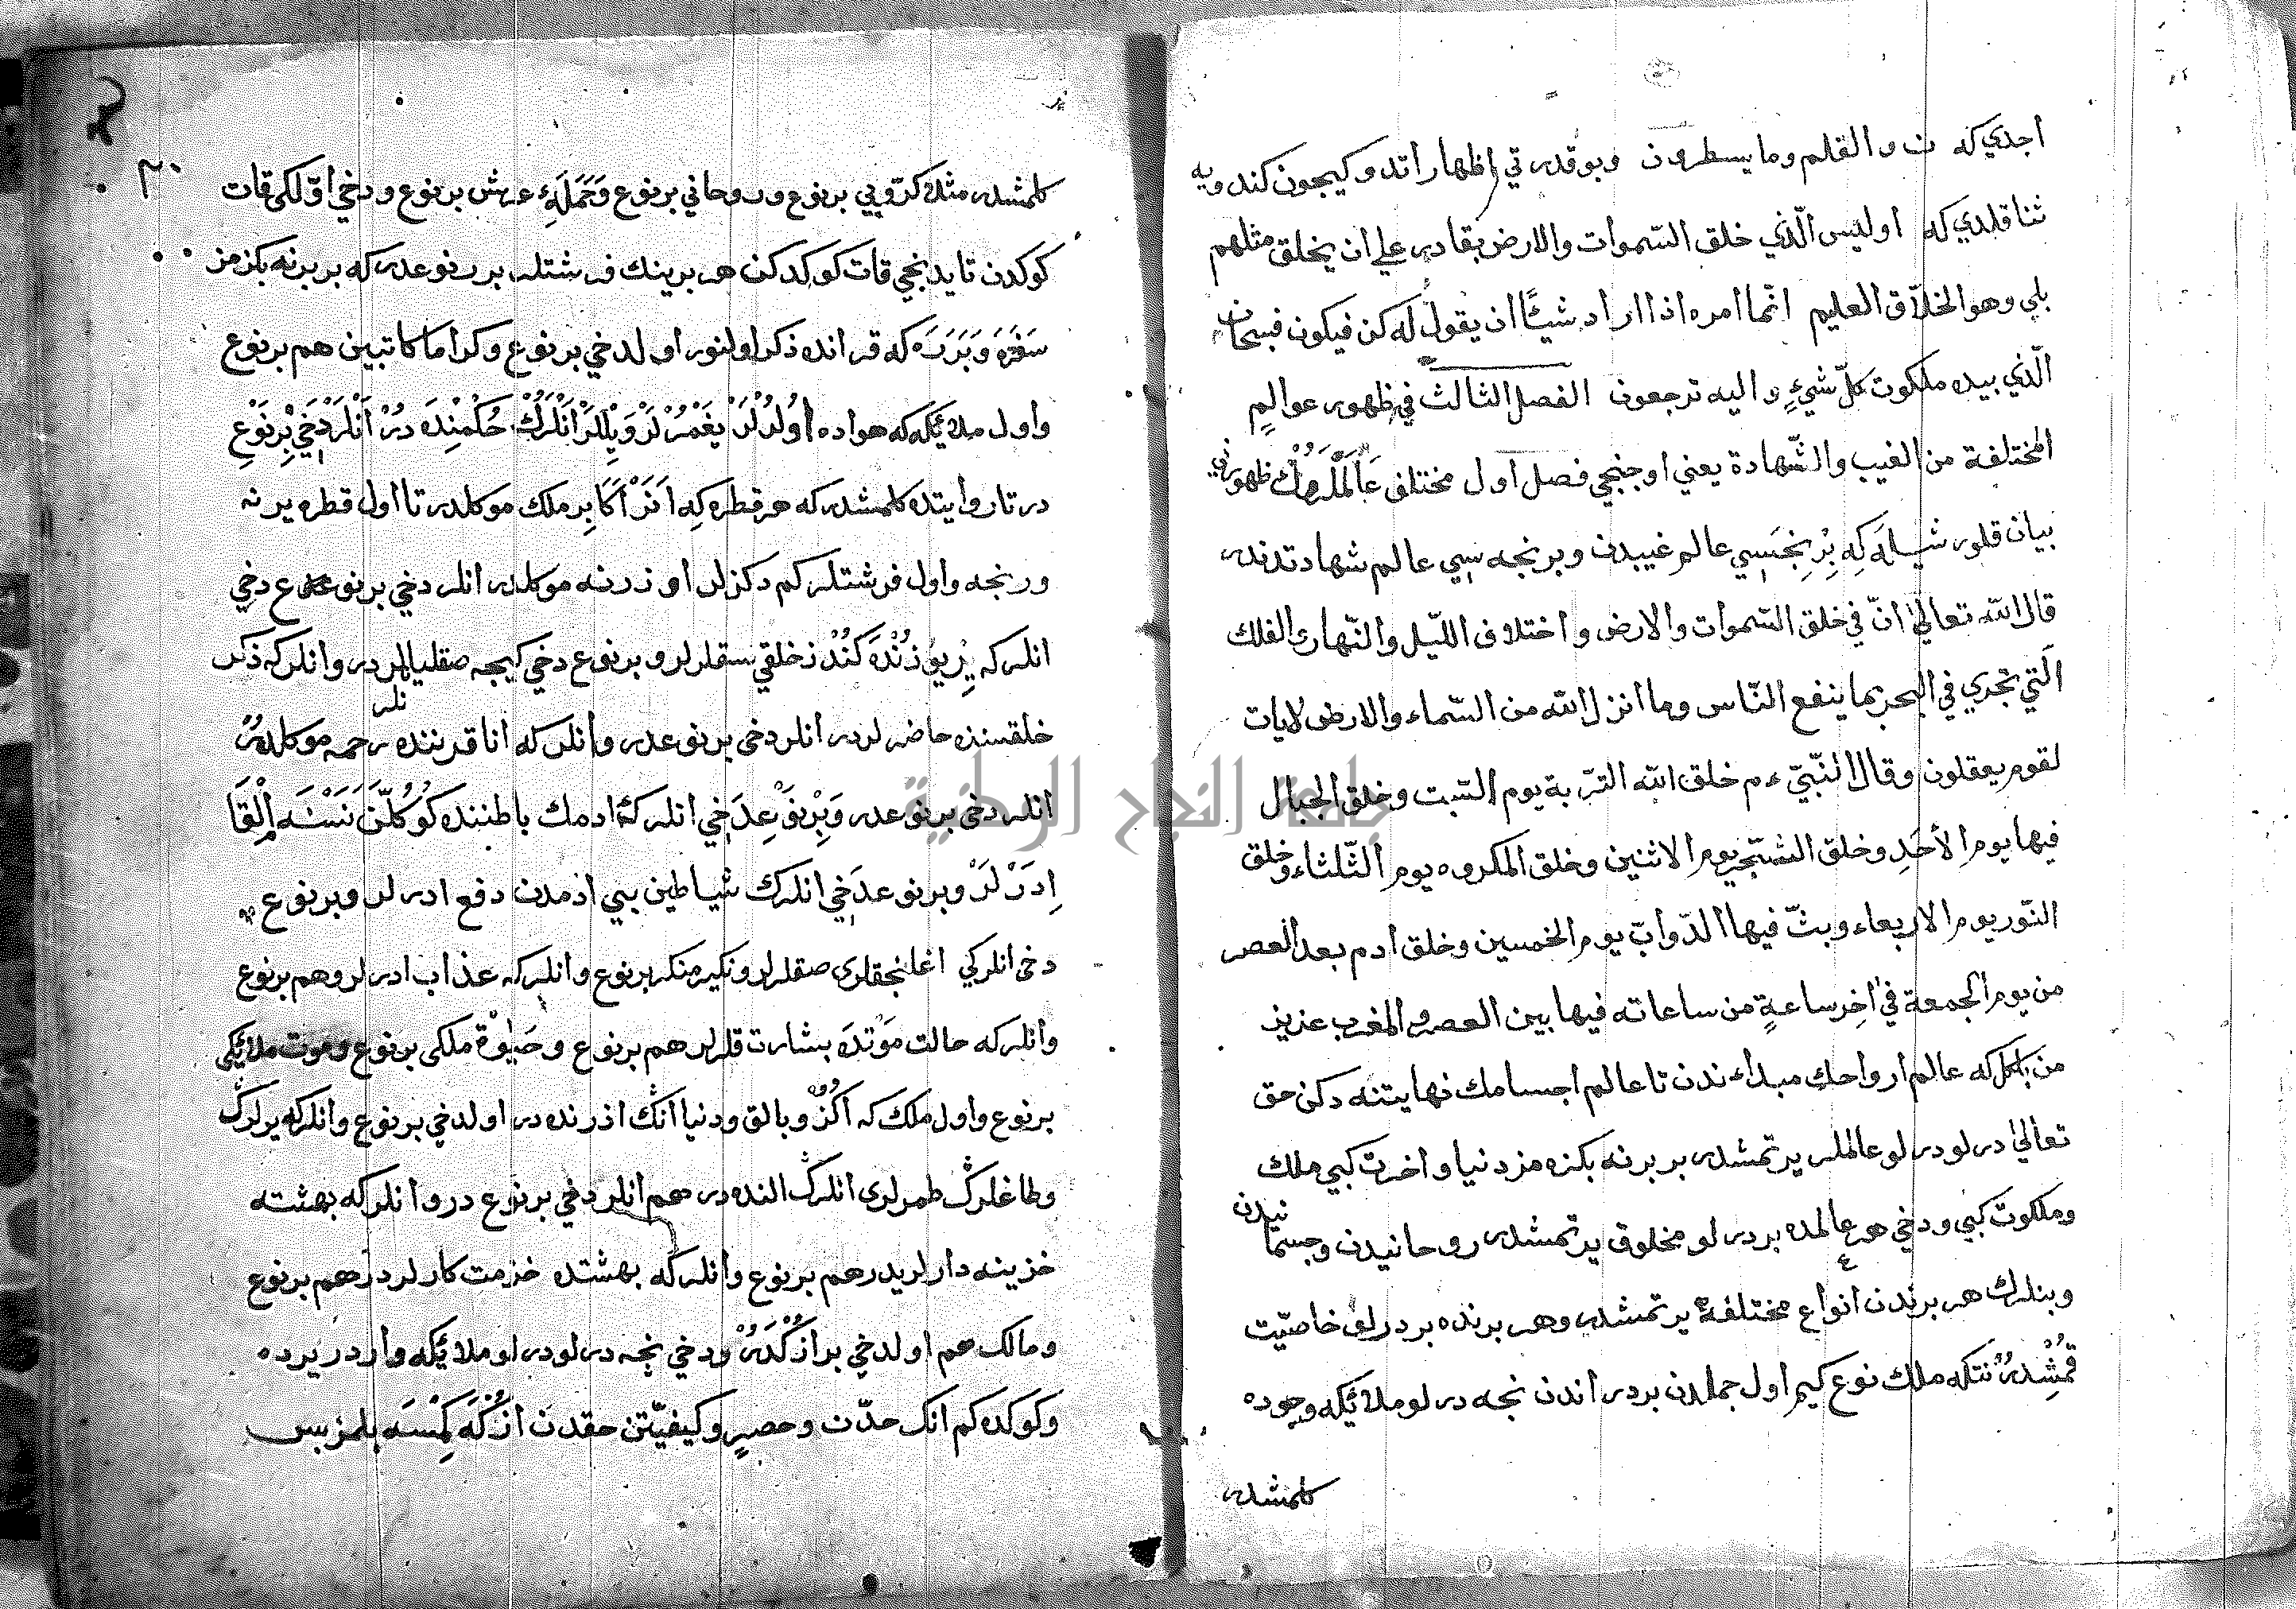 اجدي كه ن والقلم وما يسطرون وبو قدرتي اظهار اتدو كيجون كندويه
ثنا قلدي كه اوليس الّذي خلق السّموات والارض بقادر علي ان يخلق مثلهم
بلي وهو الخلاّق العليم انّما امره اذا اراد شيئًا ان يقول له كن فيكون فسبحان
الّذي بيده ملكوت كلّ شيءٍ واليه ترجعون الفصل الثالث في ظهور عوالمٍ
المختلفة من الغيب والشّهادة يعني اوجنجي فصل اول مختلف عالملرك ظهورني
بيان قلور شيله كه برنجسي عالم غيبدن وبرنجه سي عالم شهادتدندر
قال الله تعالي انّ في خلق السّموات والارض واختلاف اللّيل والنّهار الفلك
الّتي تجري في البحر بما ينفع النّاس وما انزل الله من السّماء والارض لايات
لقوم يعقلون وقال النّبيّ ءم خلق الله التّربة يوم السّبت وخلق الجبال
فيها يوم الأحَدِ وخلق الشّجر يوم الاثنين وخلق المكروه يوم الثّلثاء وخلق
النّور يوم الاربعاء وبثّ فيها الدّوابّ يوم الخمسين وخلق ادم بعد العصر
من يوم الجمعة في اخِر ساعةٍ من ساعاته فيها بين العصر والمغرب عزيز
من بلكل كه عالم ارواحك مبداء ندن تا عالم اجسامك نهايتنه دكن حق
تعالي درلودرلو عالملر يرتمشدر بر برنه بكزه مز دنيا واخرت كبي ملك
وملكوت كبي ودخي هر عالمده بردرلو مخلوق يرتمشدر روحانيدن وجسمانيدن
وبنلرك هر برندن انواع مختلفة يرتمشدر وهر برنده بر درلو خاصيّت
قمشدر نتكه ملك نوع كيم اول جملدن بردر اندن نجه درلو ملائيكه وجوده
كلمشدر
٣٠
كلمشدر مثلا كرّوبي برنوع وروحاني برنوع وَحَمَلَهءِ عرش برنوع ودخي اوّلكي قات
كوكدن تا يدنجي قات كوكدكن هر برينك فرشتلر بر نوعدر كه بر برنه بكزمز
سَفَرَه وَبَرَرَه كه قرانده ذكر اولنور اولدخي برنوع وكراما كاتبين هم برنوع
واول ملائيكه كه هواده اُولُرْلَرْ يَغْمُرْلَرْ وَيِلْلَرْ اَنْلَرُكْ حُكْمِنْدَه دُرْ اَنْلَرْدَخِي بِرْنَوْعِ
در تا روايتده كلمشدر كه هر قطره كِه اَنَرْ اَكَا بِر ملك موكلدر تا اول قطره يرنه
ورنجه واول فرشتلر كم دكزلر اوزرنه موكلدر انلر دخي برنوع دخي
انلر كه يِر يُوزُنْدَه كُنْدُز خلقي سقلرلر وبرنوع دخي كيجه صقليالردر وانلركه ذكر
خلقسنده حاضرلردر انلر دخي برنوعدر وانلر كه انا قرننده رحمه موكلدر
انلر دخي برنوعدر وَبِرْنَوْعِدَخِي انلركه ادمك باطننده كُوكُلَنَه نَسْنَه اِلْقَا
اِدَرْلَرْ وبرنوعدَخِي انلرك شياطين بيي ادمدن دفع ادرلر وبرنوع
دخي انلركي اغلنجقلري صقلرلر ونكير منكر برنوع وانلركه عذاب ادرلر وهم برنوع
وانلركه حالت مَوْتدَه بشارت قلرلر هم برنوع وحَيٰوة ملكي برنوع وموت ملائيكي
برنوع واول ملك كه اُكُزْ وبالق ودنيا انك اذرنده در اولدخي برنوع وانلركه يرلرك
وطاغلرك طمرلري انلرك النده در هم انلر دخي برنوع در وانلركه بهشته
خزينه دارلريدر هم برنوع وانلركه بهشتده خزمتكارلردر هم برنوع
ومالك هم اولدخي بر ازكُدَرْ ودخي نجه درلودرلو ملائيكه واردر يرده
وكوكده كم انك حدّن وحصرٍ وكيفيّتن حقدن ازْكَه كِمْسَه بلمز بس
جامعة النجاح الوطنية